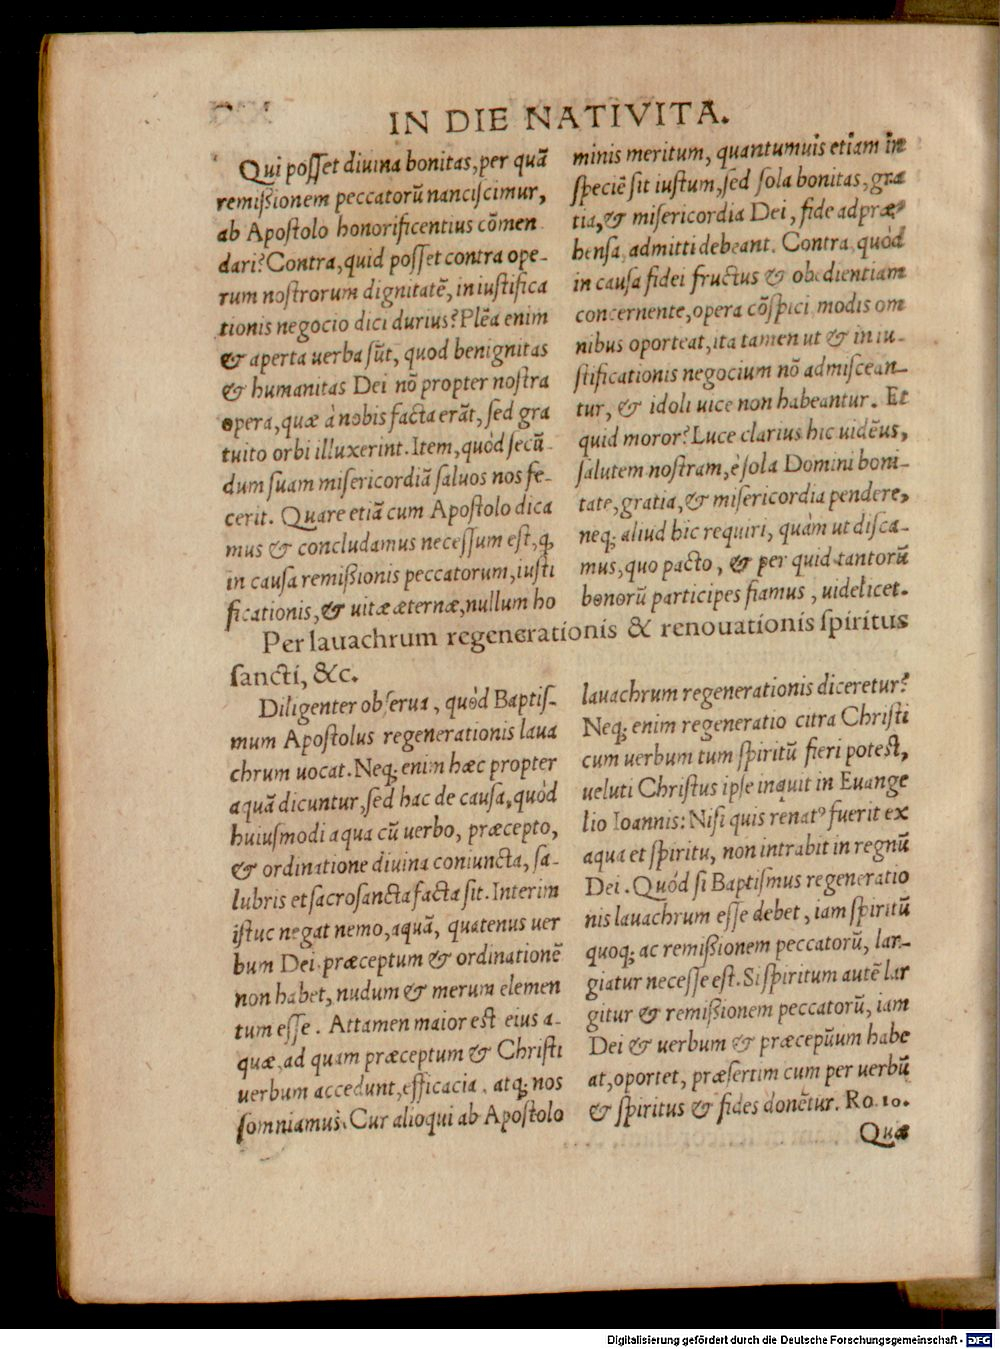 IN DIE NATIVITA.
Qui posset diuina bonitas, per quã
remißionem peccatorũ nanciscimur,
ab Apostolo honorificentius cõmen
dari? Contra, quid posset contra ope-
rum nostrorum dignitatẽ, in iustifica
tionis negocio dici durius? Plẽa enim
& aperta uerba sũt, quod benignitas
& humanitas Dei nõ propter nostra
opera, quæ à nobis facta erãt, sed gra
tuito orbi illuxerint. Item, quòd secũ-
dum suam misericordiã saluos nos fe-
cerit. Quare etiã cum Apostolo dica
mus & concludamus necessum est, q̃
in causa remißionis peccatorum, iusti
ficationis, & uitæ æternæ, nullum ho
minis meritum, quantumuis etiam in
speciẽ sit iustum, sed sola bonitas, gra
tia, & misericordia Dei, fide adpræ-
hensa, admitti debeant. Contra, quòd
in causa fidei fructus & obedientiam
concernente, opera cõspici modis om
nibus oporteat, ita tamen ut & in iu-
stificationis negocium nõ admiscean-
tur, & idoli uice non habeantur. Et
quid moror? Luce clarius hic uidẽus,
salutem nostram, è sola Domini boni-
tate, gratia, & misericordia pendere,
neq; aliud hic requiri, quàm ut disca-
mus, quo pacto, & per quid tantorũ
bonorũ participes fiamus, uidelicet.
Per lauachrum regenerationis & renouationis spiritus
sancti, &c.
Diligenter obserua, quòd Baptis-
mum Apostolus regenerationis laua
chrum uocat. Neq; enim hæc propter
aquã dicuntur, sed hac de causa, quòd
huiusmodi aqua cũ uerbo, præcepto,
& ordinatione diuina coniuncta, sa-
lubris et sacrosancta facta sit. Interim
istuc negat nemo, aquã, quatenus uer
bum Dei præceptum & ordinationẽ
non habet, nudum & merum elemen
tum esse. Attamen maior est eius a-
quæ, ad quam præceptum & Christi
uerbum accedunt, efficacia, atq; nos
somniamus. Cur alioqui ab Apostolo
lauachrum regenerationis diceretur?
Neq; enim regeneratio citra Christi
cum uerbum tum spiritũ fieri potest,
ueluti Christus ipse inquit in Euange
lio Ioannis: Nisi quis renatꝰ fuerit ex
aqua et spiritu, non intrabit in regnũ
Dei. Quòd si Baptismus regeneratio
nis lauachrum esse debet, iam spiritũ
quoq; ac remißionem peccatorũ, lar-
giatur necesse est. Si spiritum autẽ lar
gitur & remißionem peccatorũ, iam
Dei & uerbum & præceptum habe
at, oportet, præsertim cum per uerbũ
& spiritus & fides donẽtur. Ro. 10.
Quæ
Digitalisierung gefördert durch die Deutsche Forschungsgemeinschaft - DFG